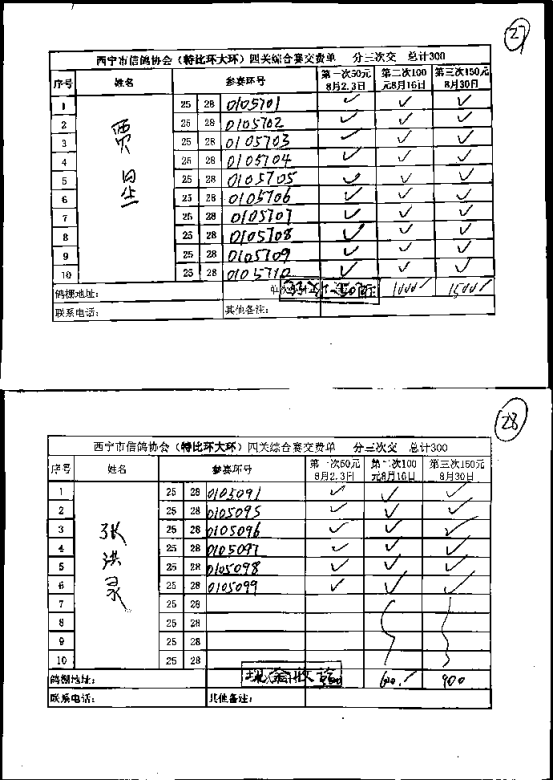 27
西宁市信鸽协会（特比环大环）四关综合赛交费单 分三次交 总计300
序号 姓名 参赛环号 第一次50元8月2.3日 第二次100元8月16日 第三次150元8月30日
1 25 28 0105701 ✓ ✓ ✓
2 25 28 0105702 ✓ ✓ ✓
3 25 28 0105703 ✓ ✓ ✓
4 25 28 0105704 ✓ ✓ ✓
5 25 28 0105705 ✓ ✓ ✓
6 25 28 0105706 ✓ ✓ ✓
7 25 28 0105707 ✓ ✓ ✓
8 25 28 0105708 ✓ ✓ ✓
9 25 28 0105709 ✓ ✓ ✓
10 25 28 0105710 ✓ ✓ ✓
贾
鸽棚地址： 1000 1500
联系电话： 其他备注：
28
西宁市信鸽协会（特比环大环）四关综合赛交费单 分三次交 总计300
序号 姓名 参赛环号 第一次50元8月2.3日 第二次100元8月16日 第三次150元8月30日
1 25 28 0105091 ✓ ✓ ✓
2 25 28 0105095 ✓ ✓ ✓
3 25 28 0105096 ✓ ✓ ✓
4 25 28 0105097 ✓ ✓ ✓
5 25 28 0105098 ✓ ✓ ✓
6 25 28 0105099 ✓ ✓ ✓
7 25 28
8 25 28
9 25 28
10 25 28
张洪录
鸽棚地址： 现金收讫 600 900
联系电话： 其他备注：